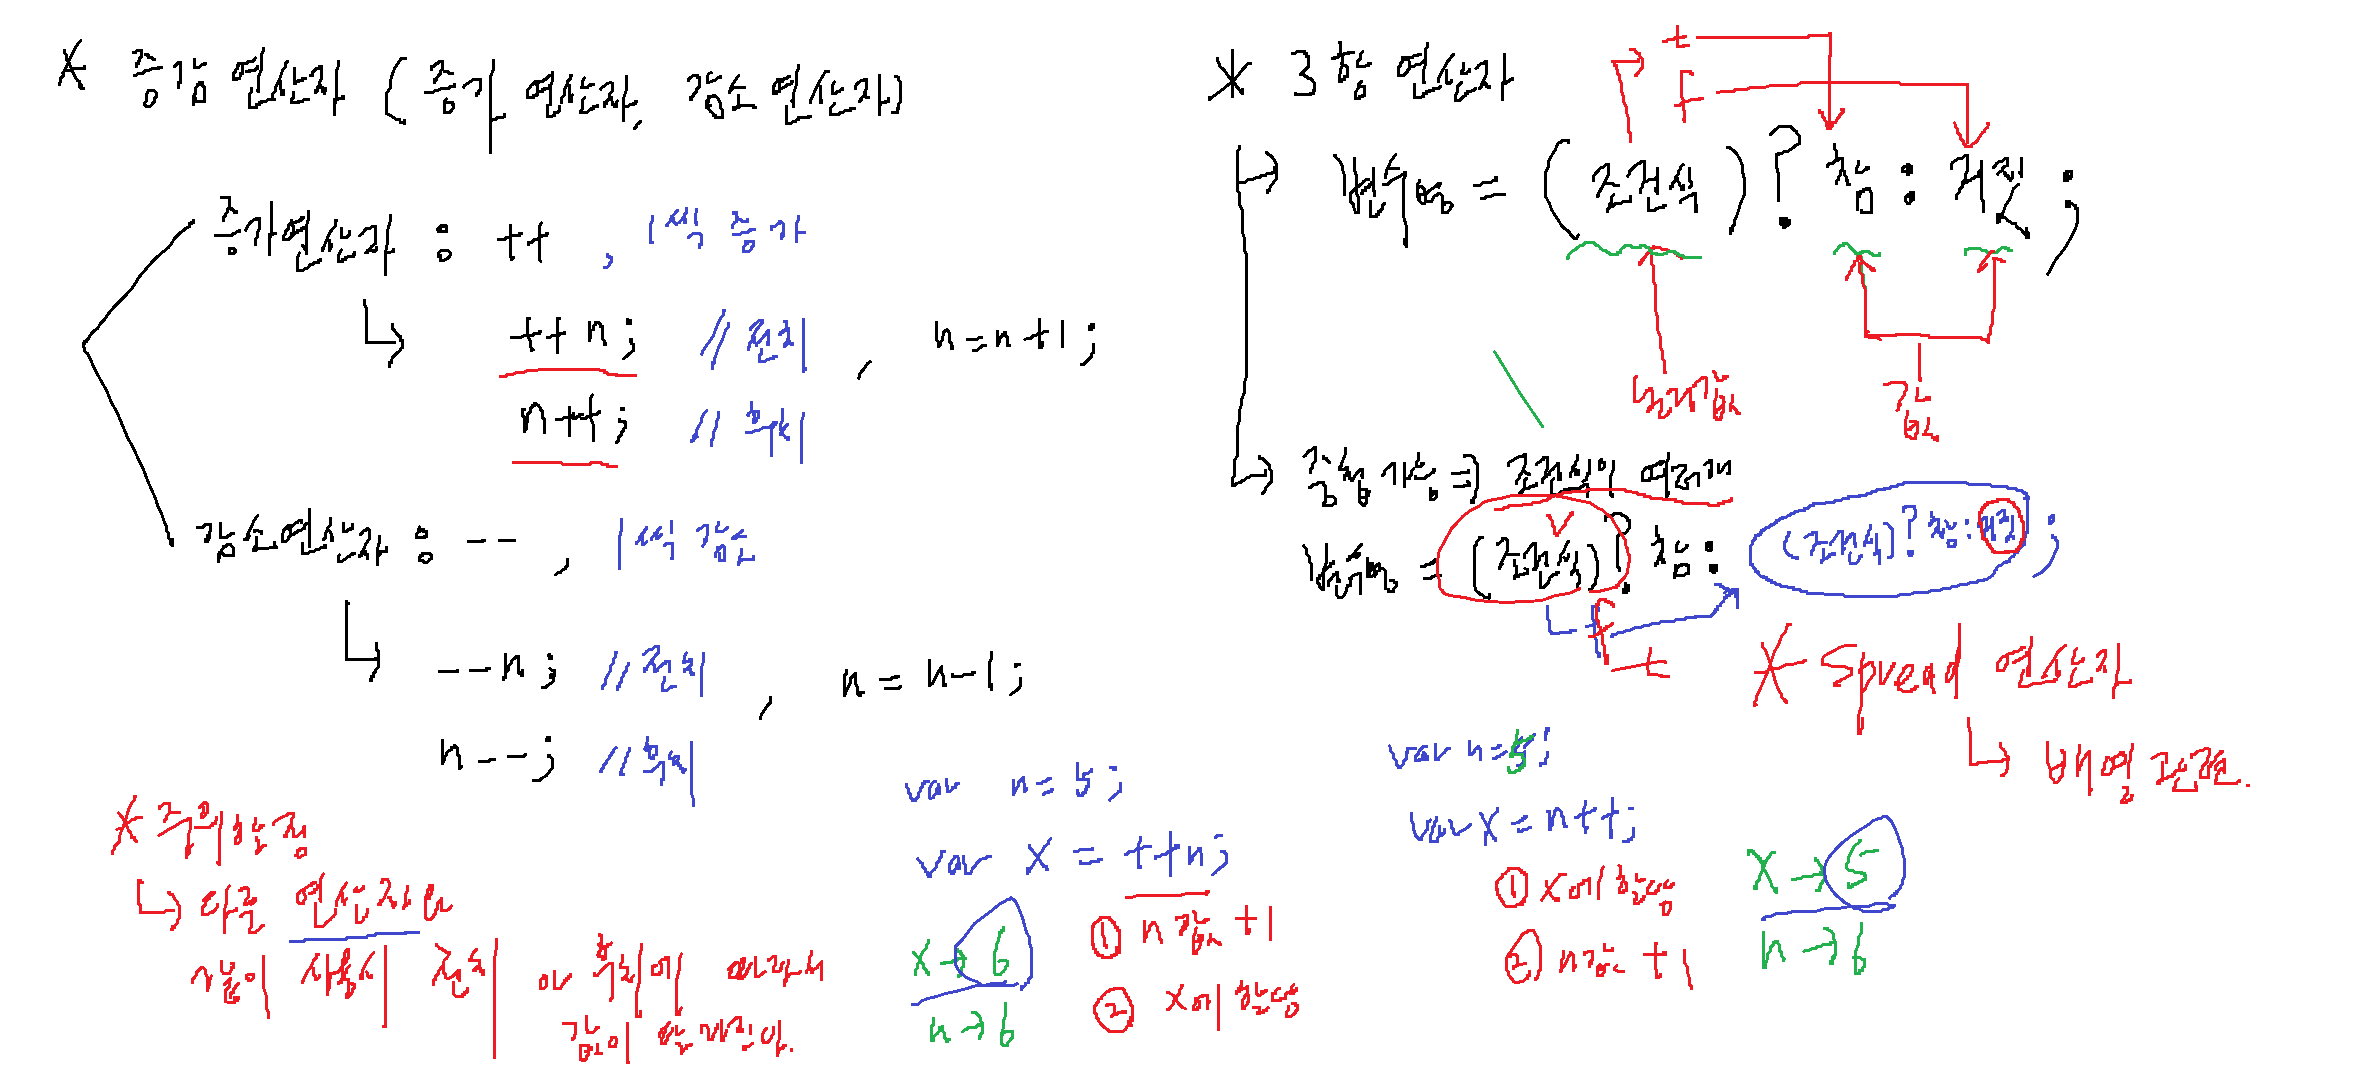 * 증감 연산자 (증가 연산자, 감소 연산자)
증가연산자 : ++ , 1씩 증가
++n; //전치 , n=n+1;
n++; //후치
감소연산자 : -- , 1씩 감소
--n; //전치 , n=n-1;
n--; //후치
* 주의할점
다른 연산자와
같이 사용시 전치 or 후치에 따라서
값이 달라진다.
var n=5;
var x = ++n;
① n값 +1
② x에 할당
x→6
n→6
* 3항 연산자
t
f
변수명 = (조건식) ? 참 : 거짓 ;
논리값
값
중첩 가능 ⇒ 조건식이 여러개
변수명 = (조건식) ? 참 : (조건식) ? 참 : 거짓 ;
f
t
* Spread 연산자
배열 관련.
var n=5;
var x = n++;
① x에 할당
② n값 +1
x→5
n→6